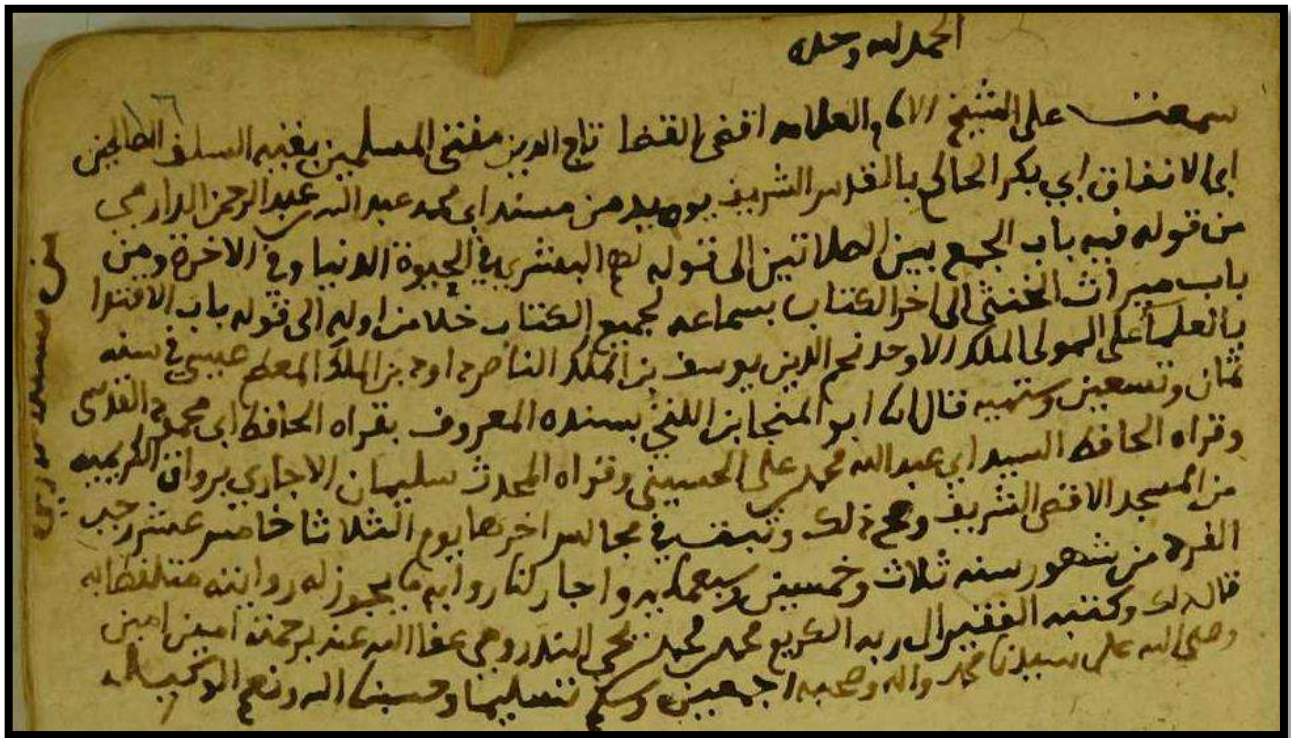 الحمد لله وحده
سمعت على الشيخ الامام العلامه اقضى القضا تاج الدين مفتي المسلمين بقيه السلف الصالحين
ابى الانفاق ابي بكر الحاكم بالقدس الشريف يوميد من مسند ابي محمد عبد الله بن عبد الرحمن الدارمي
من قوله فيه باب الجمع بين الصلاتين الى قوله لهم البشرى في الحيوة الدنيا وفي الاخرة ومن
باب ميراث الخنثى الى اخر الكتاب بسماعه لجميع الكتاب خلا من اوله الى قوله باب الاقتدا
بالعلما على المولى الملك الاوحد نجم الدين يوسف بن الملك الناصر داود بن الملك المعظم عيسى في سنه
ثمان وتسعين وستميه قال انا ابو المنجا بن اللتي بسنده المعروف بقراه الحافظ ابي محمود المقدسي
وقراه الحافظ السيد ابي عبد الله محمد بن علي الحسيني وقراه المحدث سليمان برواق الكريميه
من المسجد الاقصى الشريف وصح ذلك وثبت في مجالس اخرها يوم الثلاثا خامس عشر رجب
الفرد من شهور سنه ثلاث وخمسين وسبعمايه واجاز لنا روايه ما يجوز له روايته متلفظا به
قال ذلك وكتبه الفقير الى ربه الكريم محمد بن محمد بن يحيى الندرومي عفا الله عنه برحمته امين امين
وصلى الله على سيدنا محمد واله وصحبه اجمعين وسلم تسليما وحسبنا الله ونعم الوكيل
من مسند